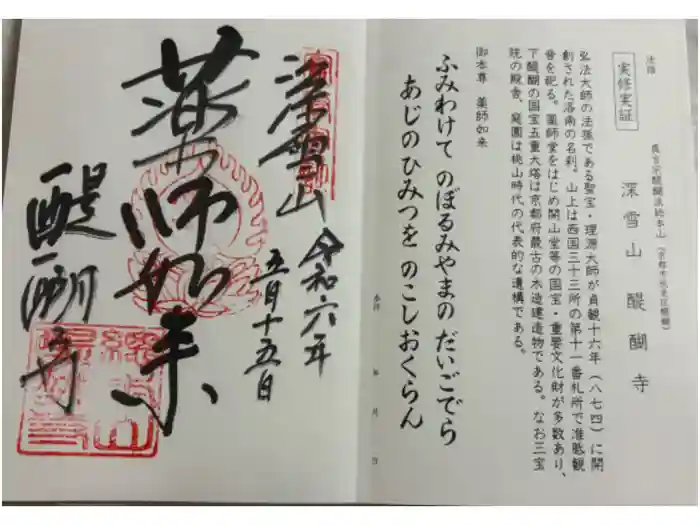 法印
実修実証
真言宗醍醐派総本山（京都市伏見区醍醐）
深雪山　醍醐寺
弘法大師の法孫である聖宝・理源大師が貞観十六年（八七四）に開
創された洛南の名刹。山上は西国三十三所の第十一番札所で准胝観
音を祀る。薬師堂をはじめ開山堂等の国宝・重要文化財が多数あり、
下醍醐の国宝五重大塔は京都府最古の木造建造物である。なお三宝
院の殿舎、庭園は桃山時代の代表的な遺構である。
御本尊　薬師如来
ふみわけて のぼるみやまの だいごでら
あじのひみつを のこしおくらん
年　月　日
深雪山
令和六年
五月十五日
薬師如来
醍醐寺